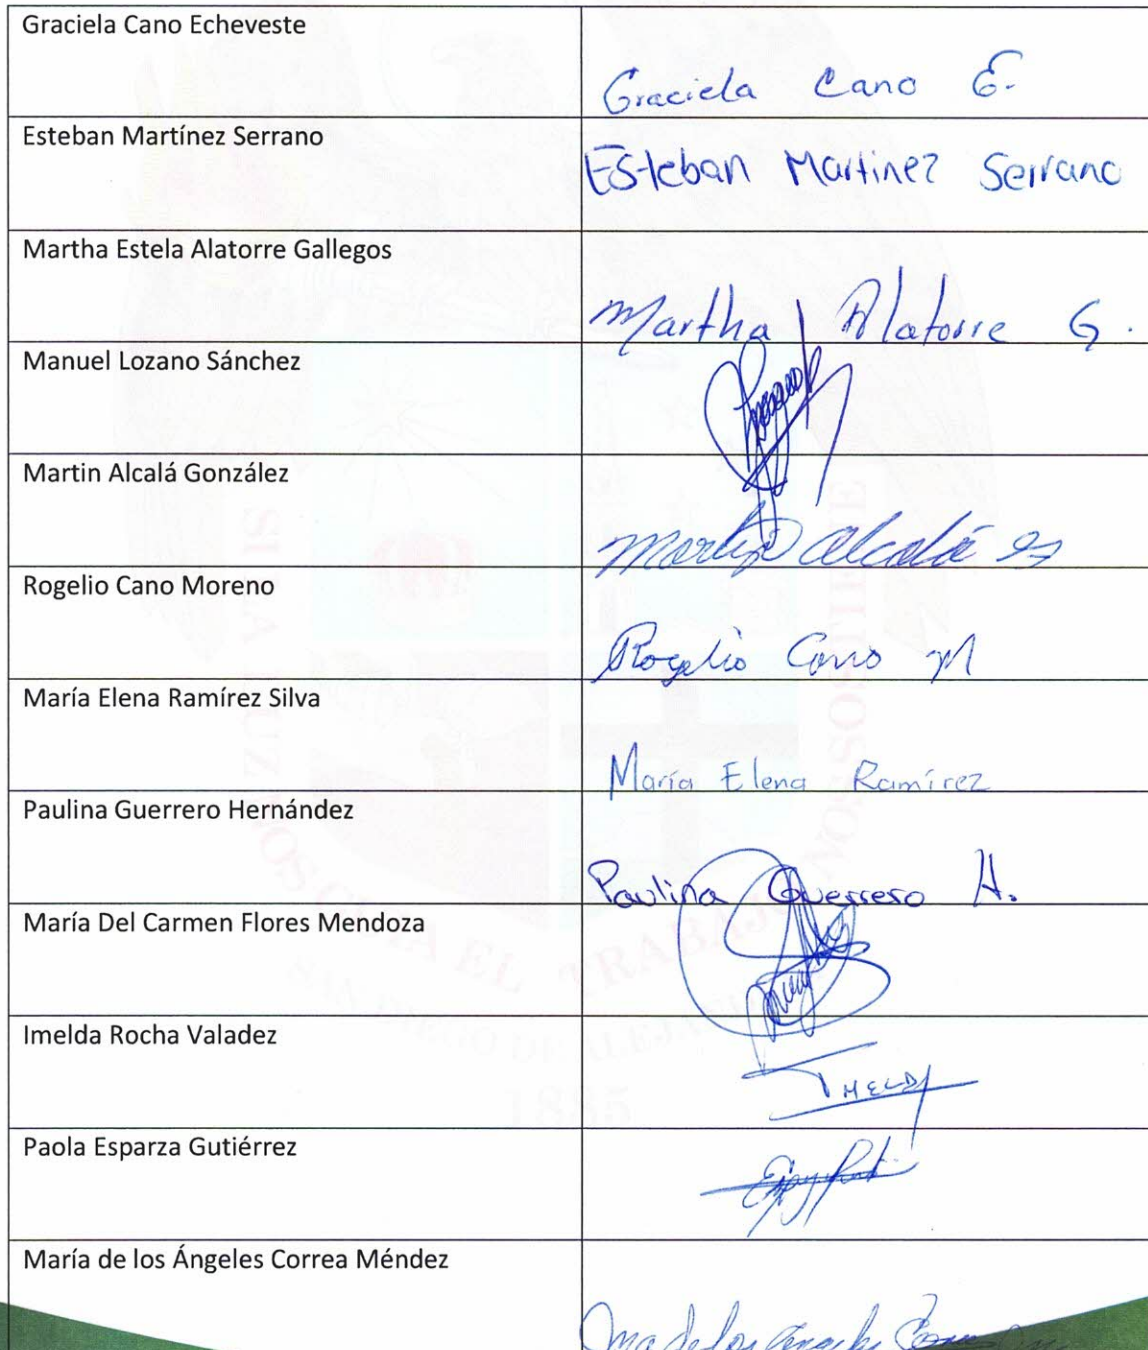 Graciela Cano Echeveste
Graciela Cano E.
Esteban Martínez Serrano
Esteban Martinez Serrano
Martha Estela Alatorre Gallegos
Martha Alatorre G.
Manuel Lozano Sánchez
Martin Alcalá González
Martin Alcalá
Rogelio Cano Moreno
Rogelio Cano M
María Elena Ramírez Silva
María Elena Ramírez
Paulina Guerrero Hernández
Paulina Guerrero H.
María Del Carmen Flores Mendoza
Imelda Rocha Valadez
IMELDA
Paola Esparza Gutiérrez
María de los Ángeles Correa Méndez
Ma de los Angeles
SI LA LUZ NOS GUIA EL TRABAJO NOS SOSTIENE
SAN DIEGO DE ALEJANDRIA
1885